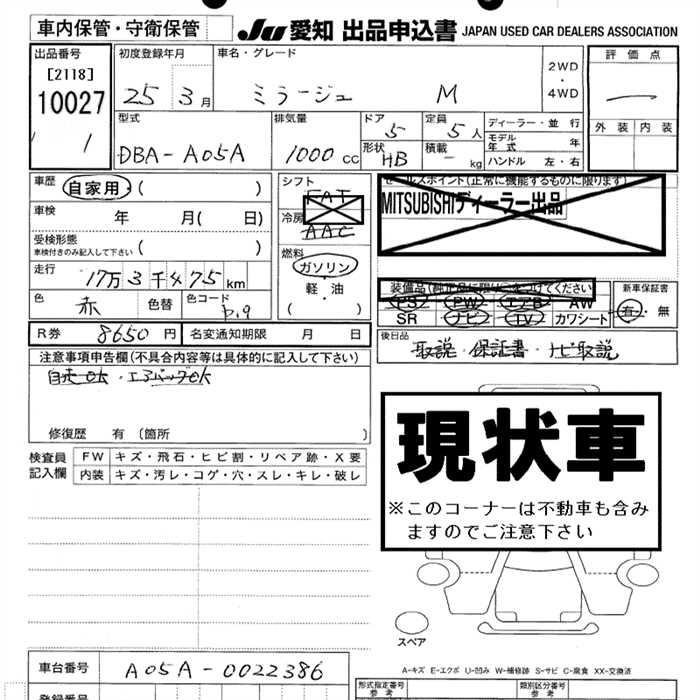 車内保管・守衛保管
Ju 愛知 出品申込書 JAPAN USED CAR DEALERS ASSOCIATION
出品番号
[2118]
10027
1
初度登録年月
25 3月
車名・グレード
ミラージュ M
2WD
・
4WD
評価点
外装 内装
型式
DBA-A05A
排気量
1000 CC
ドア
5
形状
HB
定員
5人
積載
- kg
ディーラー・並行
モデル年式 年
ハンドル 左・右
車歴 自家用・( )
車検 年 月( 日)
受検形態
車検付きのみ記入して下さい ( )
走行 17万3千475km
色 赤 色替 色コード P.19
R券 8650円 名変通知期限 月 日
シフト
FAT
冷房
AAC
燃料
ガソリン
・
軽・油
( )
セールスポイント(正常に機能するものに限ります)
MITSUBISHIディーラー出品
装備品(純正品に限り○をつけてください)
PS PW エアB AW
SR ナビ TV カワシート
新車保証書
有・無
後日品
取説・保証書・ナビ取説
注意事項申告欄(不具合内容等は具体的に記入して下さい)
自走OK・エアバッグOK
修復歴 有〔箇所 〕
検査員記入欄
FW キズ・飛石・ヒビ割・リペア跡・X要
内装 キズ・汚レ・コゲ・穴・スレ・キレ・破レ
現状車
※このコーナーは不動車も含み
ますのでご注意下さい
スペア
A-キズ E-エクボ U-凹み W-補修跡 S-サビ C-腐食 XX-交換済
車台番号 A05A-0022386
登録番号
形式指定番号
参考
類別区分番号
参考